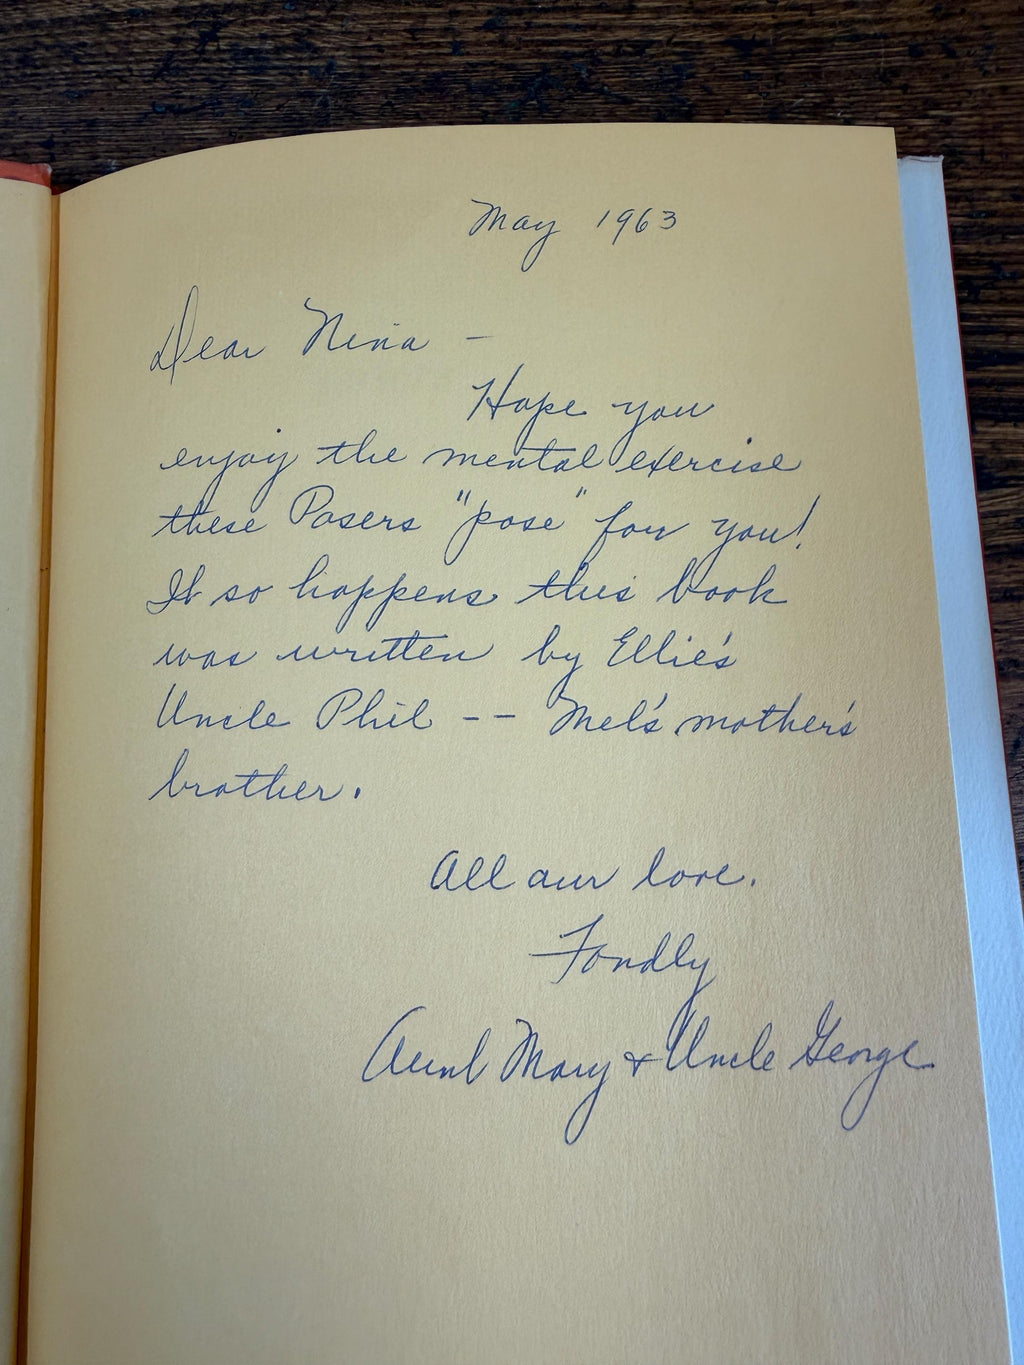 May 1963
Dear Nina -
Hope you
enjoy the mental exercise
these Posers "pose" for you!
It so happens this book
was written by Ellie's
Uncle Phil -- Mel's mother's
brother.
All our love.
Fondly
Aunt Mary & Uncle George